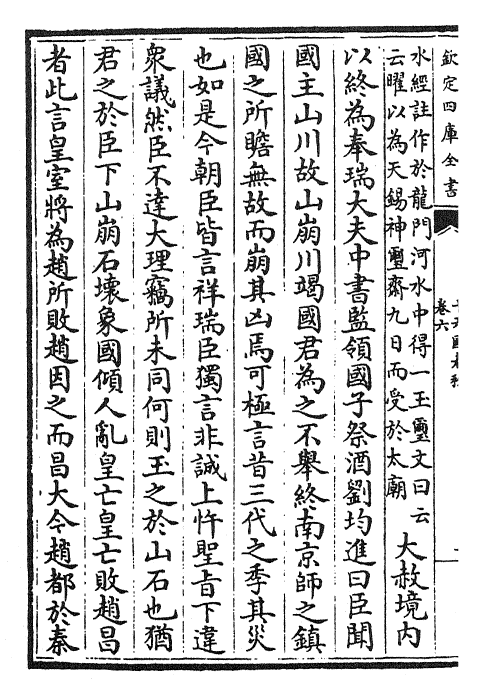 欽定四庫全書
卷六
水經註作於龍門河水中得一玉璽文曰云
云曜以為天錫神璽齋九日而受於太廟
大赦境內
以終為奉瑞大夫中書監領國子祭酒劉均進曰臣聞
國主山川故山崩川竭國君為之不舉終南京師之鎮
國之所瞻無故而崩其凶焉可極言昔三代之季其災
也如是今朝臣皆言祥瑞臣獨言非誠上忤聖旨下違
衆議然臣不達大理竊所未同何則玉之於山石也猶
君之於臣下山崩石壞象國傾人亂皇亡皇亡敗趙昌
者此言皇室將為趙所敗趙因之而昌大今趙都於秦